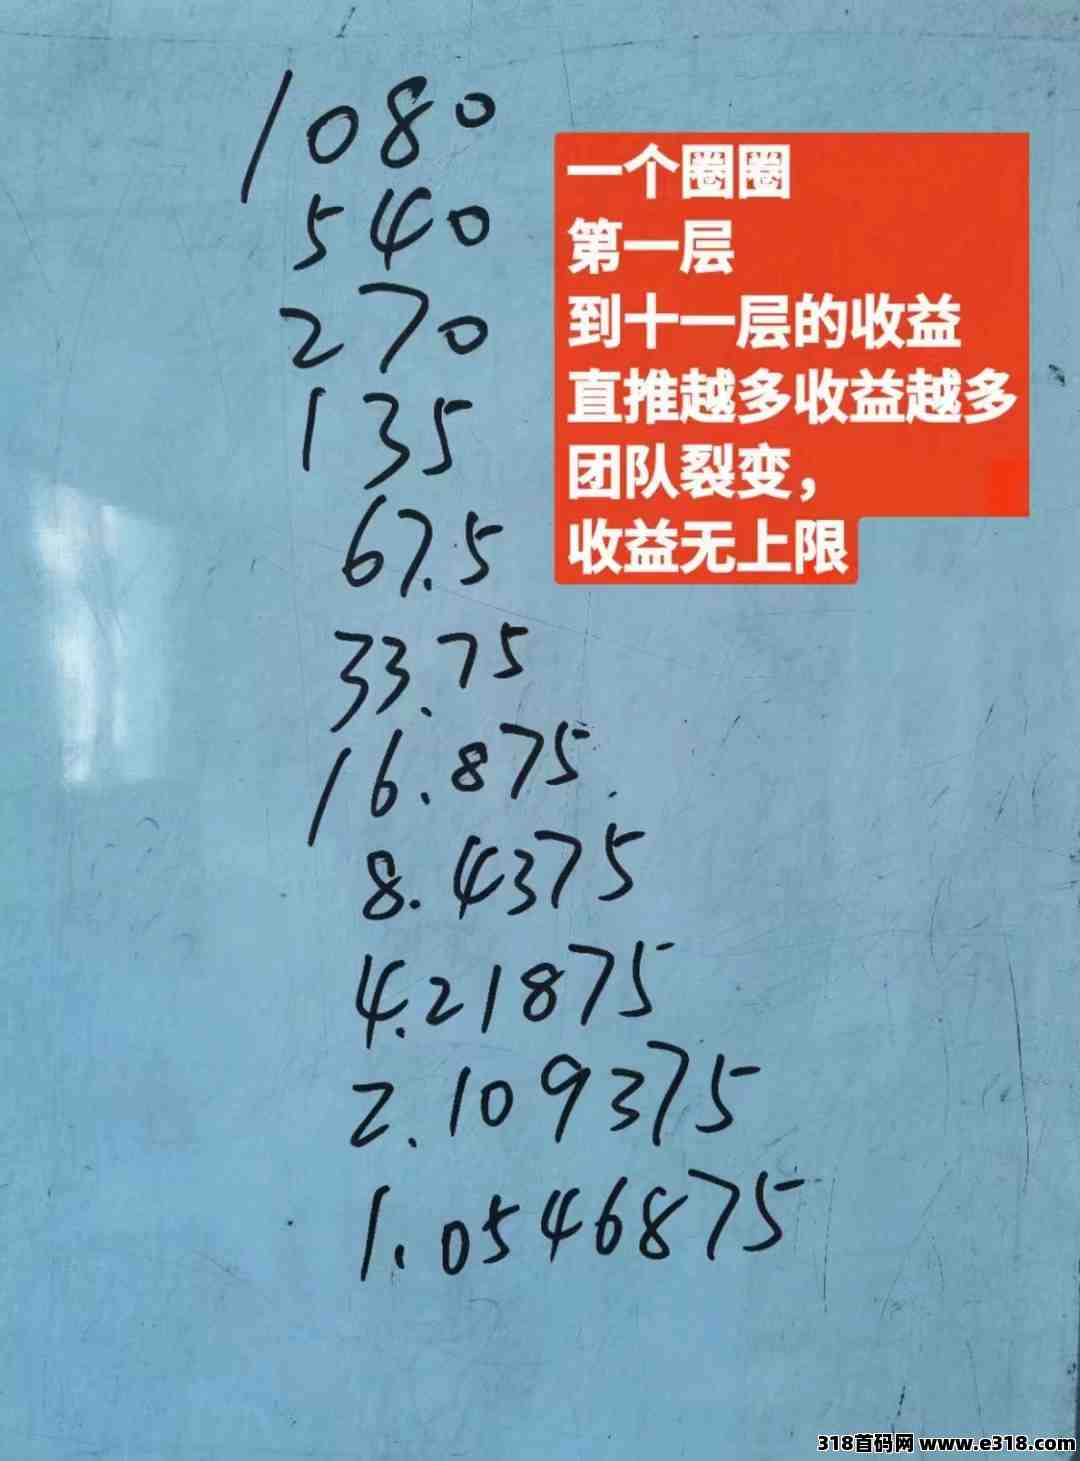 1080
540
270
135
67.5
33.75
16.875
8.4375
4.21875
2.109375
1.0546875
一个圈圈
第一层
到十一层的收益
直推越多收益越多
团队裂变，
收益无上限
318首码网 www.e318.com